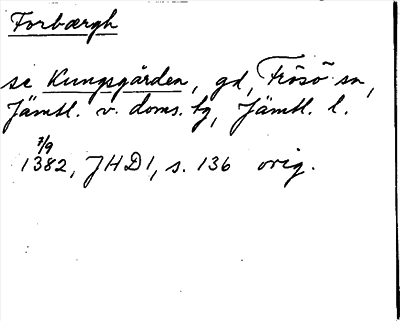 Forbærgh
se Kungsgården, gd, Frösö sn,
Jämtl. v. doms. tg, Jämtl. l.
7/9
1382, JHD1, s. 136 orig.